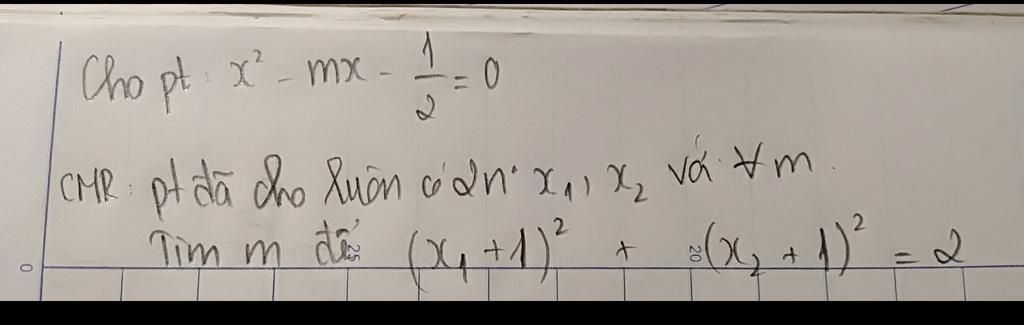 Cho pt: x² - mx - 1/2 = 0
CMR: pt đã cho luôn có 2n⁰ x₁, x₂ với ∀m.
Tìm m để (x₁ + 1)² + (x₂ + 1)² = 2
25 20
0